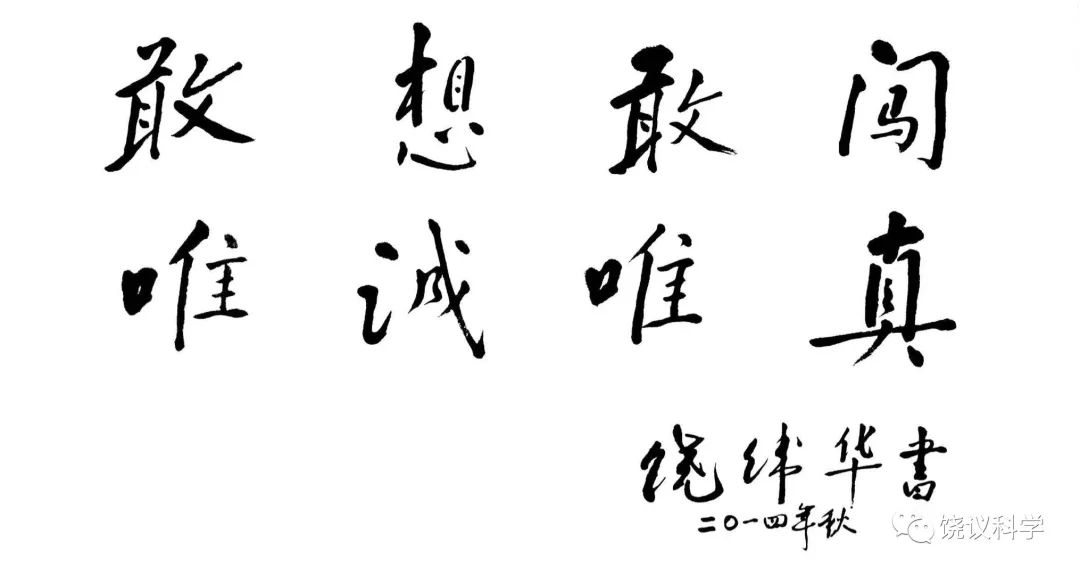 敢想敢闯
唯诚唯真
饶纬华書
二〇一四年秋
饶议科学